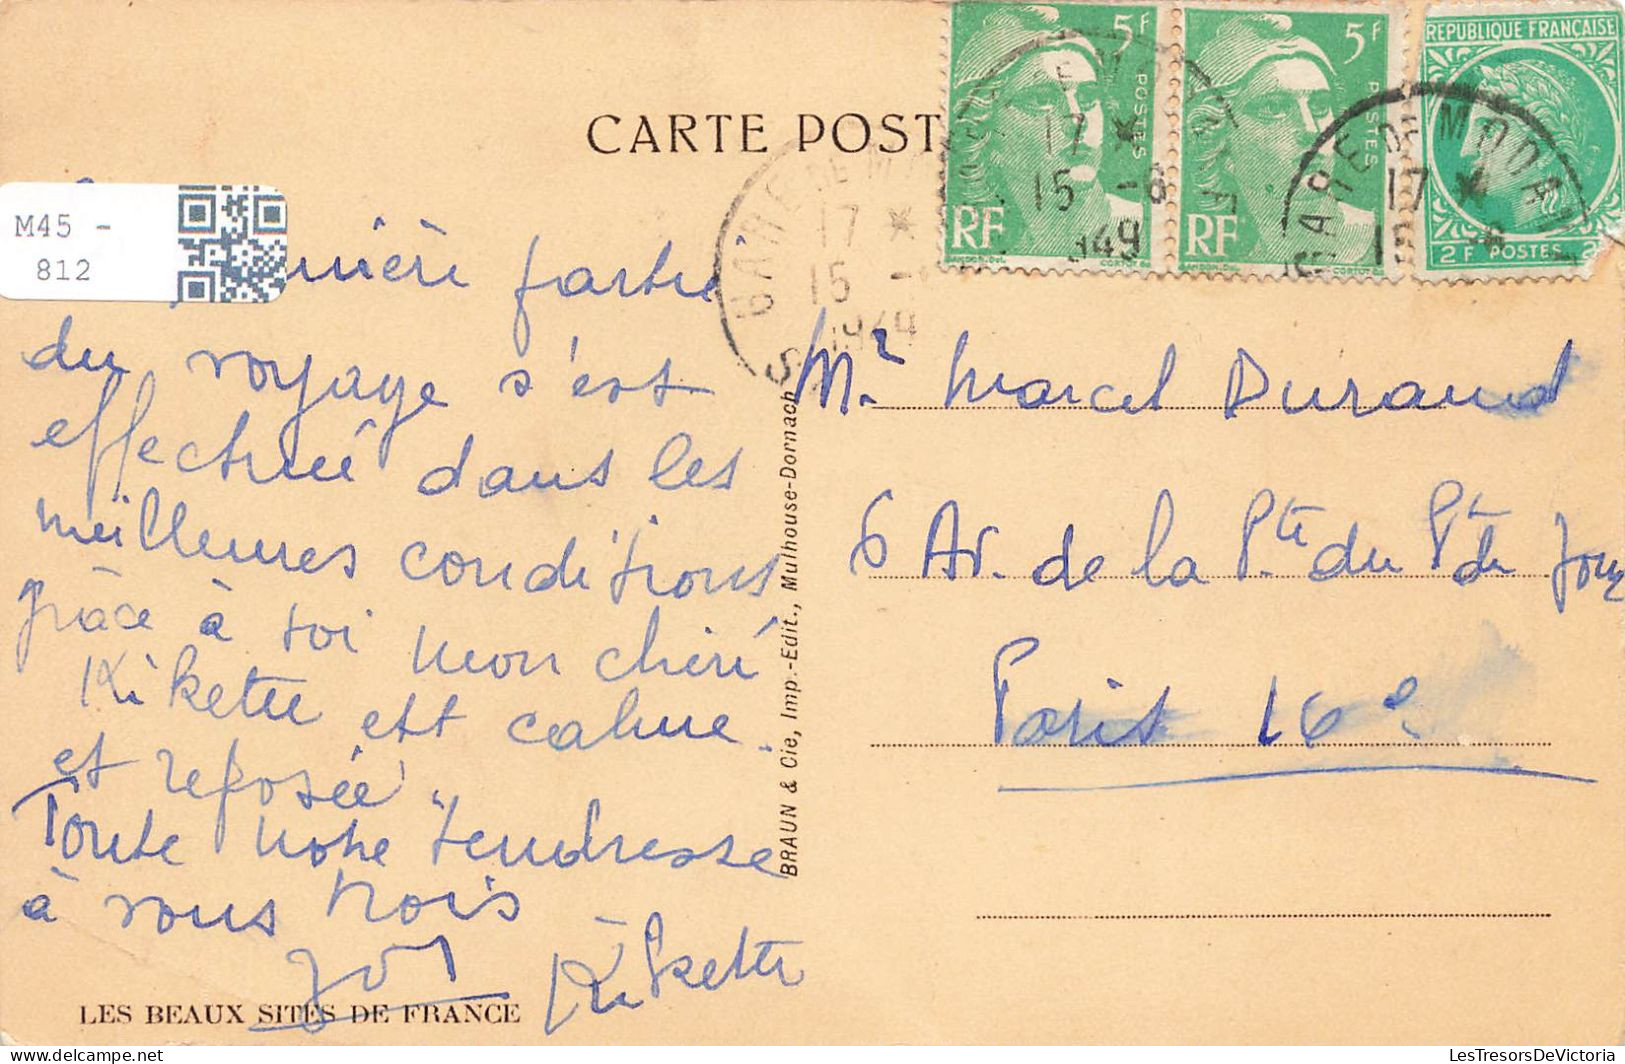 CARTE POST
M45 -
812
partie
du voyage s'est
effectuée dans les
meilleures conditions
grâce à toi mon chéri
Kikette est calme
et reposée.
Toute notre tendresse
à vous trois
Kikette
LES BEAUX SITES DE FRANCE
BRAUN & Cie, Imp.-Edit., Mulhouse-Dornach
5F
POSTES
RF
5F
POSTES
RF
REPUBLIQUE FRANÇAISE
2F POSTES 2
GARE DE MO
17 *
15 -
1949
GARE DE MODA
17 *
15 - 6
Mr Marcel Durand
6 Av. de la Pte du Pt du Jour
Paris 16e
LesTresorsDeVictoria